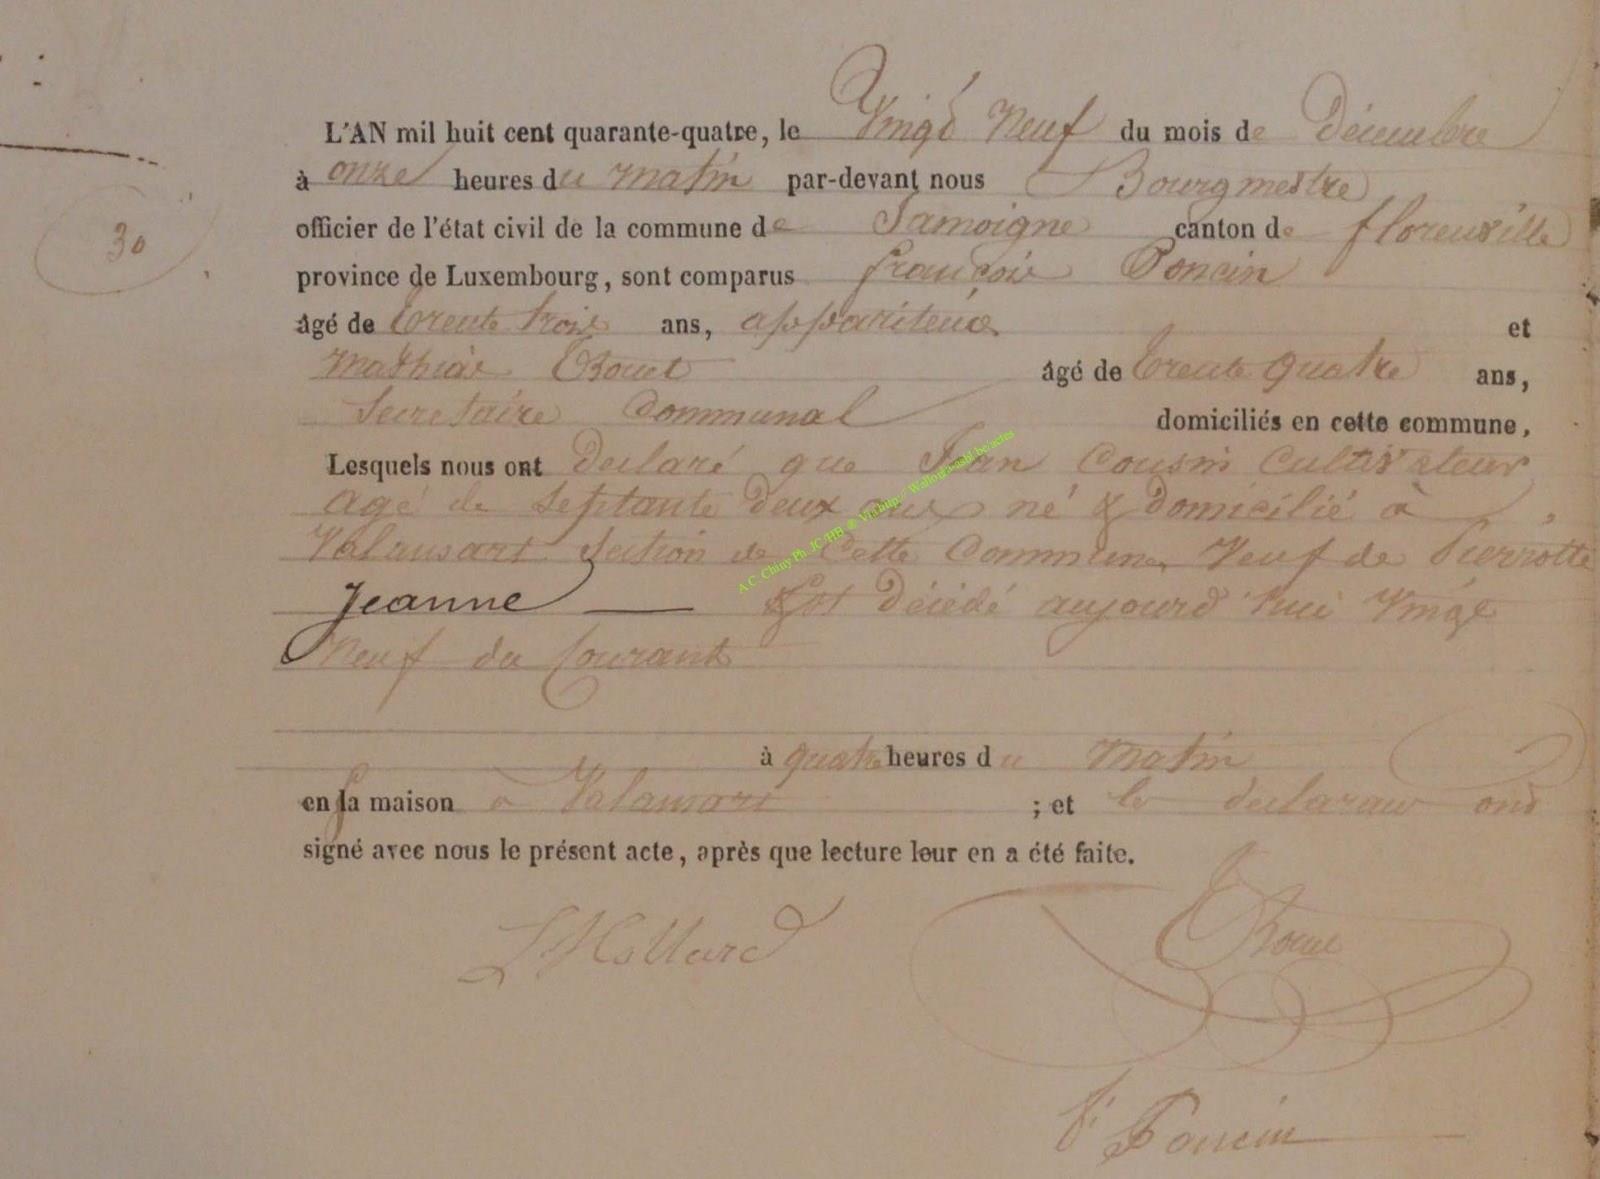 L'AN mil huit cent quarante-quatre, le Vingt Neuf du mois de Décembre
à onze heures du matin par-devant nous Bourgmestre
30
officier de l'état civil de la commune de Jamoigne canton de florenville
province de Luxembourg, sont comparus françois Poncin
âgé de trente trois ans, appariteur et
Mathias âgé de trente quatre ans,
Secretaire Communal domiciliés en cette commune,
Lesquels nous ont déclaré que Jean Cousin Cultivateur
agé de Septante Deux ans né & Domicilié à
Valansart Section de Cette Commune, Veuf de Pierrotte
Jeanne Est Décédé aujourd'hui Vingt
Neuf du Courant
à quatre heures du Matin
en sa maison à Valansart ; et le declarans ont
signé avec nous le présent acte, après que lecture leur en a été faite.
F Poncin
A.C. Chiny Ph. JC/HB